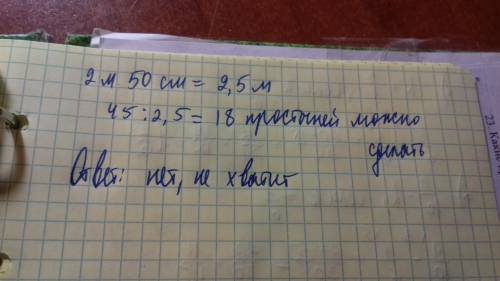 2 м 50 см = 2,5 м
45 : 2,5 = 18 простыней можно
сделать
Ответ: нет, не хватит
23. Каки